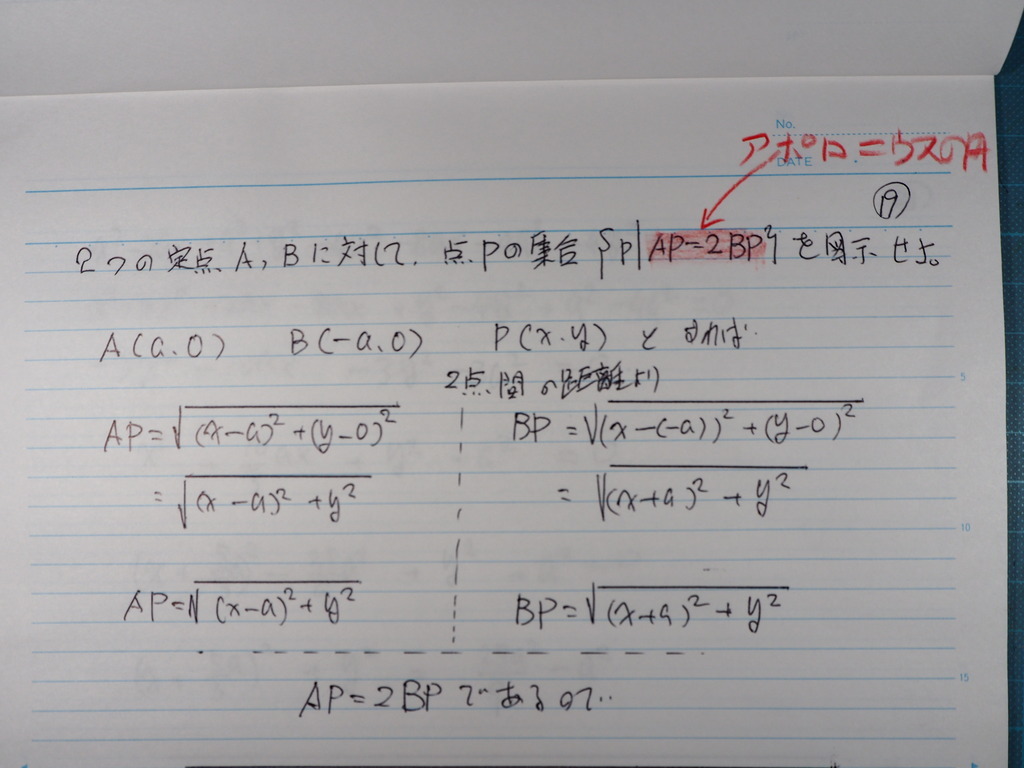 No.
DATE
アポロニウスの円
⑲
2つの定点 A, B に対して, 点Pの集合 {P|AP=2BP} を図示せよ。
A(a、0) B(-a、0) P(x、y) とすれば…
2点間の距離より
AP=√(x-a)²+(y-0)² BP=√(x-(-a))²+(y-0)²
=√(x-a)²+y² =√(x+a)²+y²
AP=√(x-a)²+y² BP=√(x+a)²+y²
AP=2BPであるので…
5
10
15